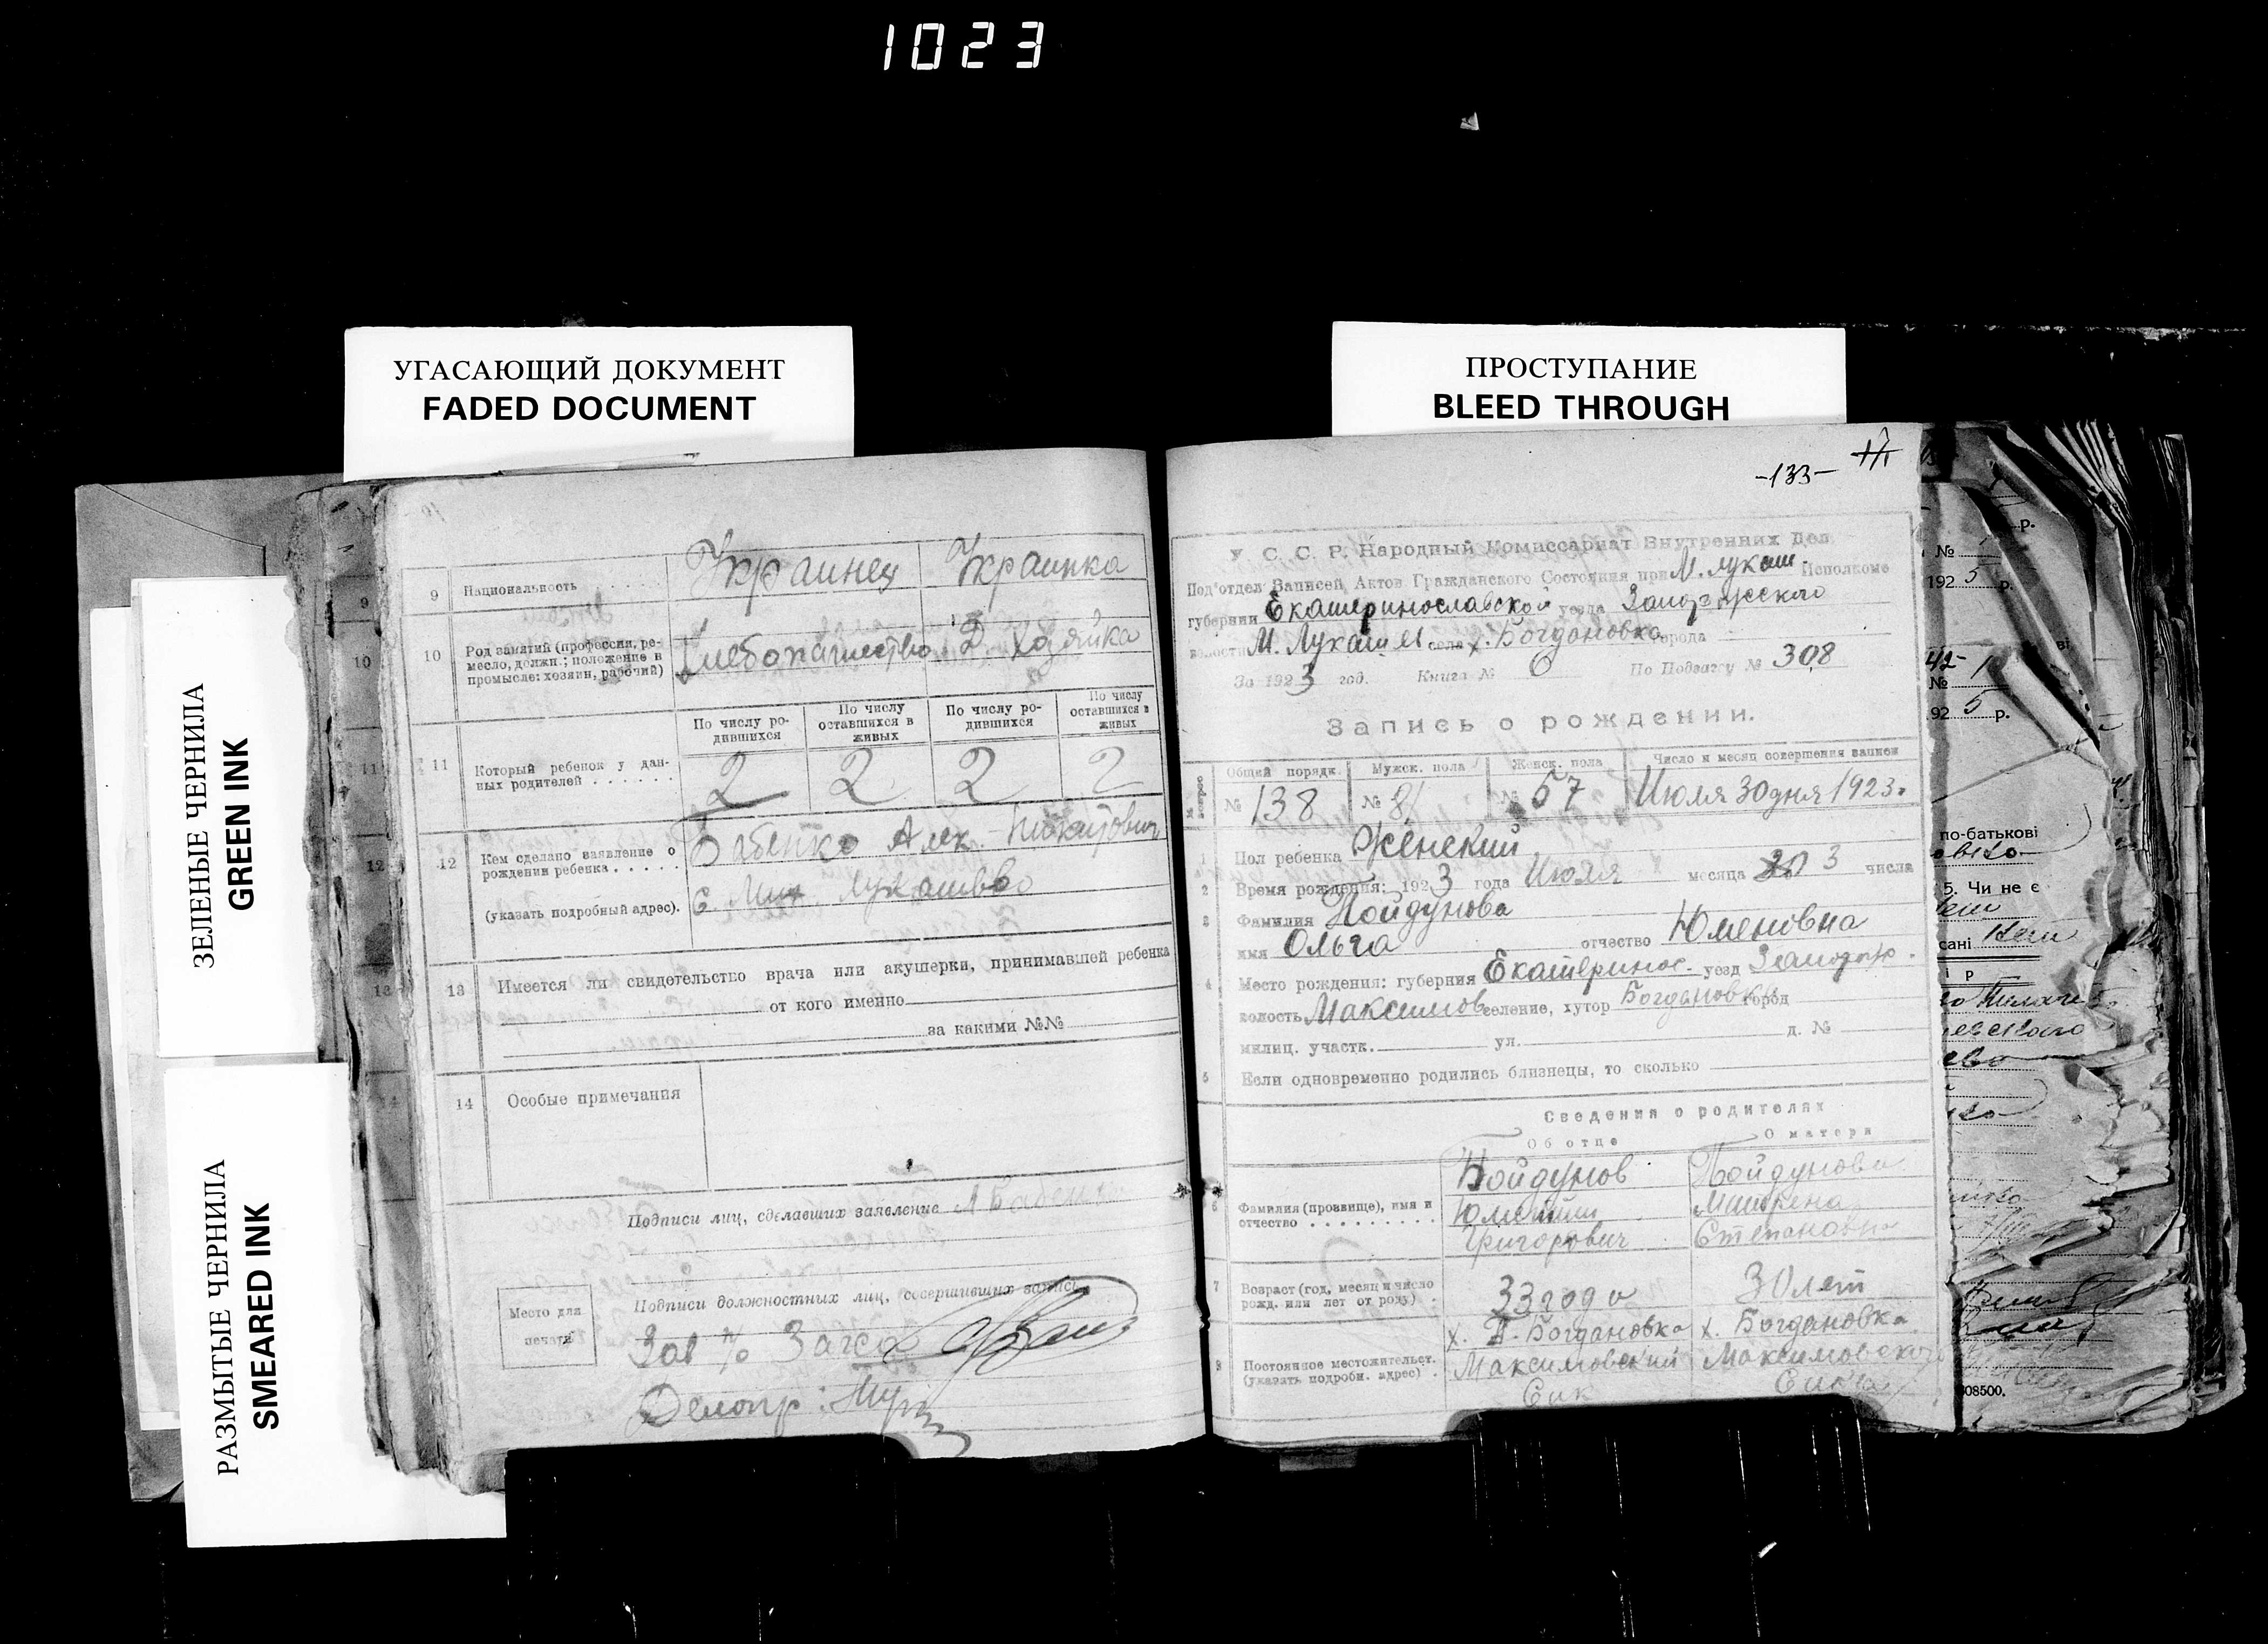 1023
УГАСАЮЩИЙ ДОКУМЕНТ
FADED DOCUMENT
ПРОСТУПАНИЕ
BLEED THROUGH
ЗЕЛЕНЫЕ ЧЕРНИЛА
GREEN INK
РАЗМЫТЫЕ ЧЕРНИЛА
SMEARED INK
9 Национальность Украинец Украинка
10 Род занятий (профессия, ре-
месло, должн.; положение в
промысле: хозяин, рабочий)
Хлебопашество Д. Хозяйка
По числу ро-
дившихся
По числу
оставшихся в
живых
По числу ро-
дившихся
По числу
оставшихся в
живых
11 Который ребенок у дан-
ных родителей 2 2 2 2
12 Кем сделано заявление о
рождении ребенка
Бабенко Алек.
(указать подробный адрес). с. Мих. Лукашево
13 Имеется ли свидетельство врача или акушерки, принимавшей ребенка
от кого именно
за какими №№
14 Особые примечания
Подписи лиц, сделавших заявление А Бабенко
Место для
печати
Подписи должностных лиц, совершивших запись
Зав п/о Загса
Делопр:
-133-
У. С. С. Р. Народный Комиссариат Внутренних Дел
Под'отдел Записей Актов Гражданского Состояния при М. Лукаш. Исполкоме
губернии Екатеринославской уезда Запорожского
волости М. Лукашев села х. Богдановка города
За 1923 год. Книга № 6 По Подвагу № 308
Запись о рождении.
Общий порядк. Мужск. пола Женск. пола Число и месяц совершения записи
№ 138 № 81 № 57 Июля 30 дня 1923.
1 Пол ребенка Женский
2 Время рождения: 1923 года Июля месяца 3 числа
3 Фамилия Пойдунова
имя Ольга отчество Юменовна
4 Место рождения: губерния Екатеринос. уезд Запорож.
волость Максимов селение, хутор Богдановка город
милиц. участк. ул. д. №
5 Если одновременно родились близнецы, то сколько
Сведения о родителях
Об отце О матери
6 Фамилия (прозвище), имя и
отчество
Пойдунов Пойдунова
Юмений Мотрена
Григорович Степановна
7 Возраст (год, месяц и число
рожд. или лет от роду)
33 года 30 лет
8 Постоянное местожительст.
(указать подробн. адрес)
х. Богдановка х. Богдановка
Максимовский Максимовского
р.
№
1925 р.
№
1925 р.
по-батькові
5. Чи не є
сані